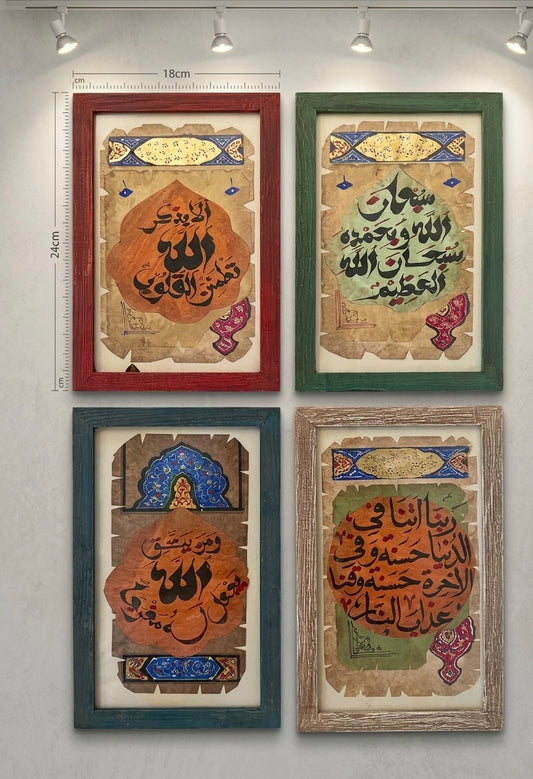 18cm
cm
24cm
cm
ألا بذكر
الله
تطمئن القلوب
سبحان
الله وبحمده
سبحان الله
العظيم
ومن يتق
الله
يجعل له مخرجا
ربنا اتنا في
الدنيا حسنة وفي
الآخرة حسنة وقنا
عذاب النار